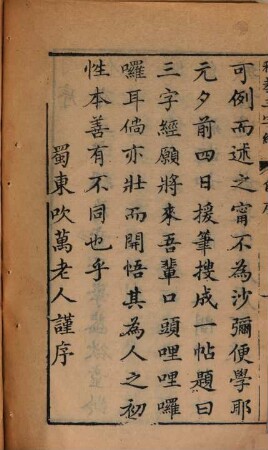 可例而述之甯不為沙彌便學耶
元夕前四日援筆搜成一帖題曰
三字經願將來吾輩口頭哩哩囉
囉耳倘亦壯而開悟其為人之初
性本善有不同也乎
蜀東吹萬老人謹序